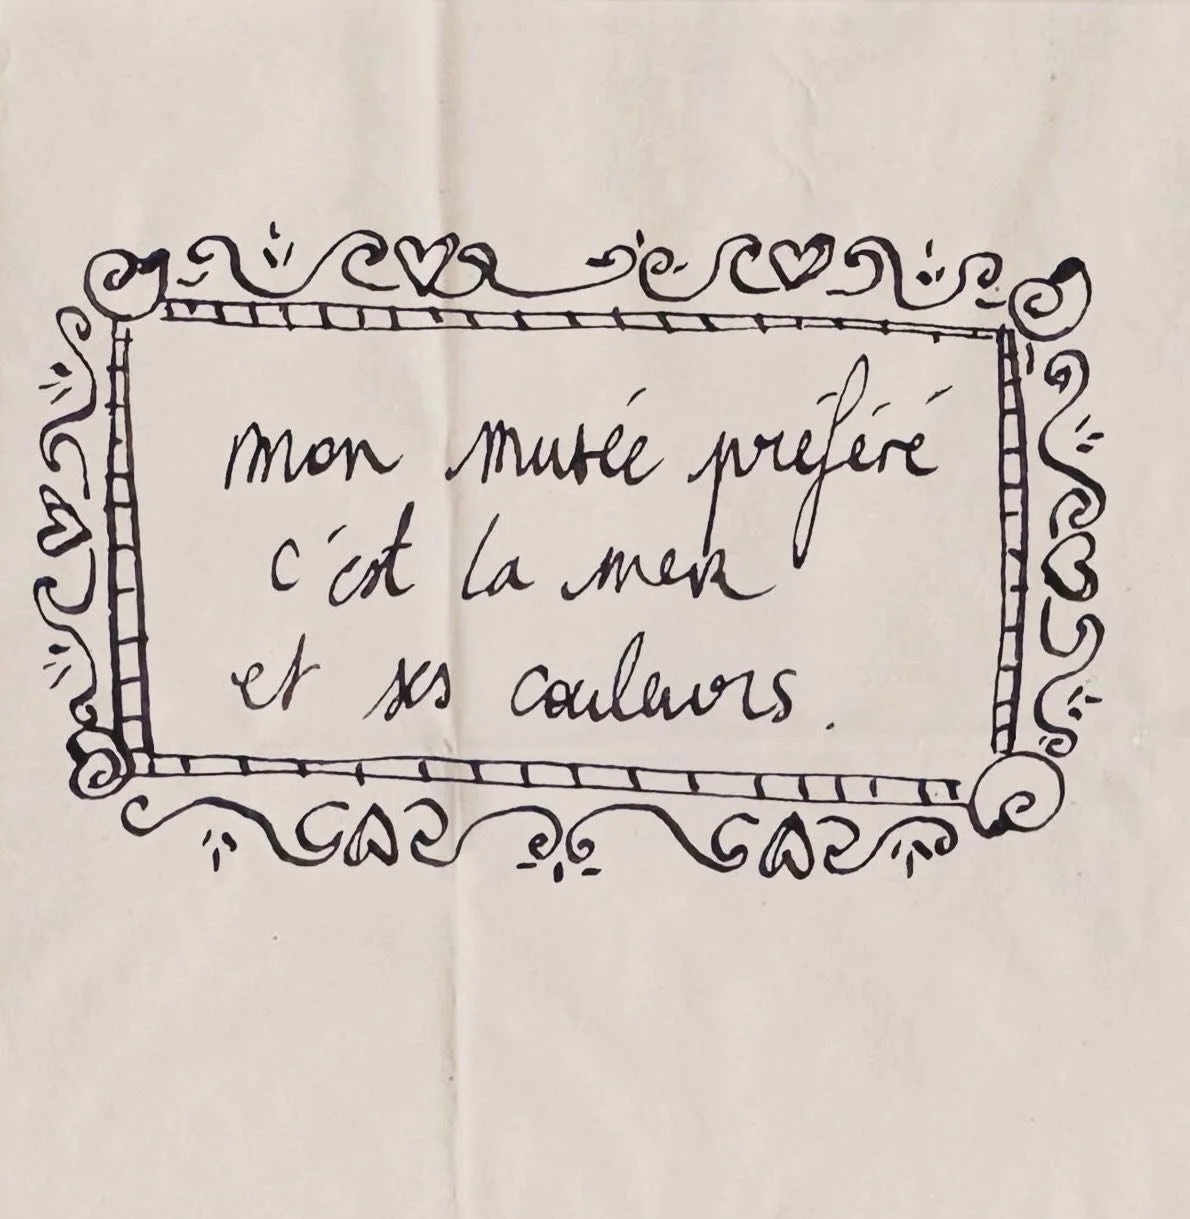 mon musée préféré
c'est la mer
et ses couleurs.